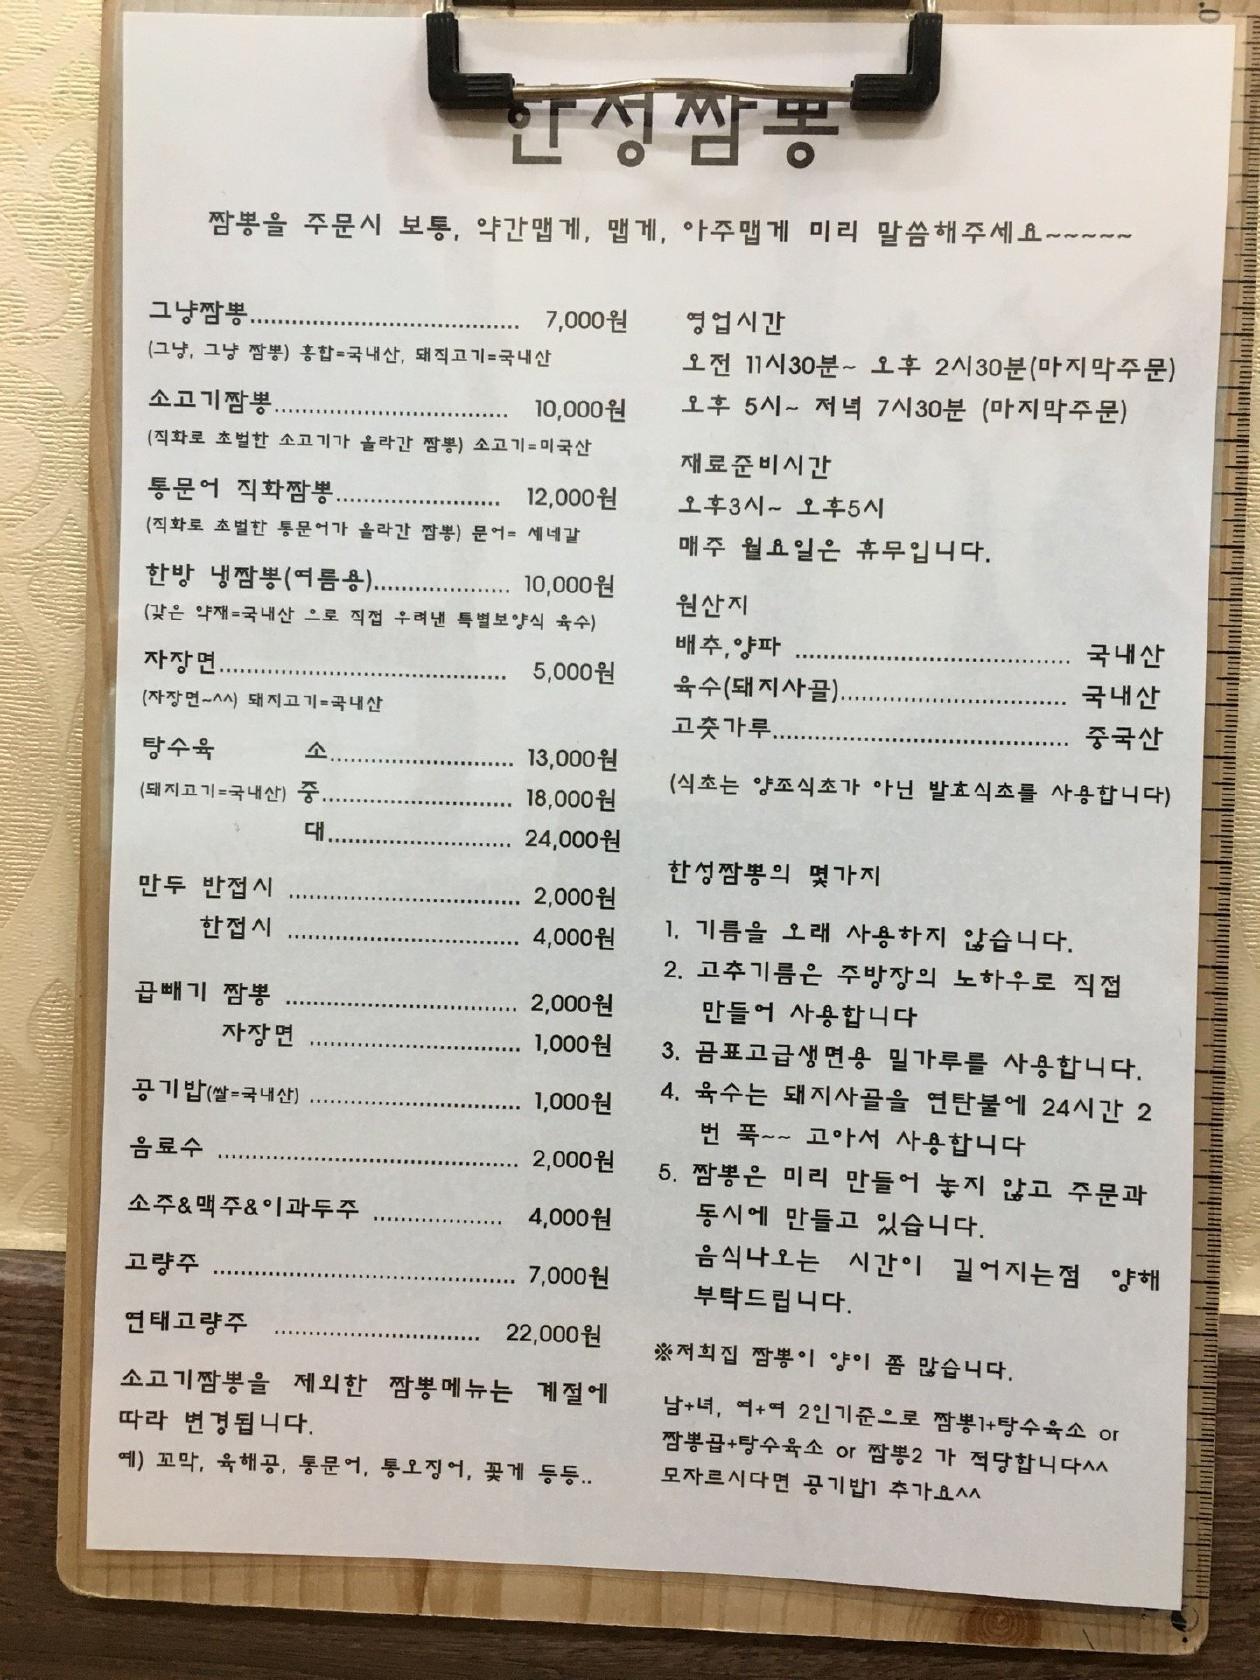 한성짬뽕
짬뽕을 주문시 보통, 약간맵게, 맵게, 아주맵게 미리 말씀해주세요~~~~~
그냥짬뽕....................................... 7,000원
(그냥, 그냥 짬뽕) 홍합=국내산, 돼직고기=국내산
소고기짬뽕.................................. 10,000원
(직화로 초벌한 소고기가 올라간 짬뽕) 소고기=미국산
통문어 직화짬뽕........................ 12,000원
(직화로 초벌한 통문어가 올라간 짬뽕) 문어= 세네갈
한방 냉짬뽕(여름용).................... 10,000원
(갖은 약재=국내산 으로 직접 우려낸 특별보양식 육수)
자장면.......................................... 5,000원
(자장면~^^) 돼지고기=국내산
탕수육 소........................... 13,000원
(돼지고기=국내산) 중............................ 18,000원
대........................... 24,000원
만두 반접시 .................................. 2,000원
한접시 .................................. 4,000원
곱빼기 짬뽕 .................................. 2,000원
자장면 ............................... 1,000원
공기밥(쌀=국내산) ............................... 1,000원
음료수 ............................................ 2,000원
소주&맥주&이과두주 ................... 4,000원
고량주 ............................................ 7,000원
연태고량주 .............................. 22,000원
소고기짬뽕을 제외한 짬뽕메뉴는 계절에
따라 변경됩니다.
예) 꼬막, 육해공, 통문어, 통오징어, 꽃게 등등..
영업시간
오전 11시30분~ 오후 2시30분(마지막주문)
오후 5시~ 저녁 7시30분 (마지막주문)
재료준비시간
오후3시~ 오후5시
매주 월요일은 휴무입니다.
원산지
배추,양파 ........................................ 국내산
육수(돼지사골)................................. 국내산
고춧가루........................................... 중국산
(식초는 양조식초가 아닌 발효식초를 사용합니다)
한성짬뽕의 몇가지
1. 기름을 오래 사용하지 않습니다.
2. 고추기름은 주방장의 노하우로 직접
만들어 사용합니다
3. 곰표고급생면용 밀가루를 사용합니다.
4. 육수는 돼지사골을 연탄불에 24시간 2
번 푹~~ 고아서 사용합니다
5. 짬뽕은 미리 만들어 놓지 않고 주문과
동시에 만들고 있습니다.
음식나오는 시간이 길어지는점 양해
부탁드립니다.
※저희집 짬뽕이 양이 쫌 많습니다.
남+녀, 여+여 2인기준으로 짬뽕1+탕수육소 or
짬뽕곱+탕수육소 or 짬뽕2 가 적당합니다^^
모자르시다면 공기밥1 추가요^^